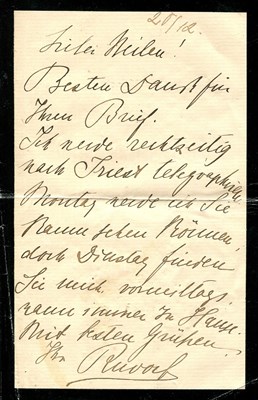 20/12.
Lieber Weilen!
Besten Dank für
Ihren Brief.
Ich werde rechtzeitig
nach Triest telegraphiren
Montag werde ich Sie
kaum sehen können,
doch Dinstag finden
Sie mich vormittags
wann immer zu Hause.
Mit besten Grüßen
Ihr
Rudolf